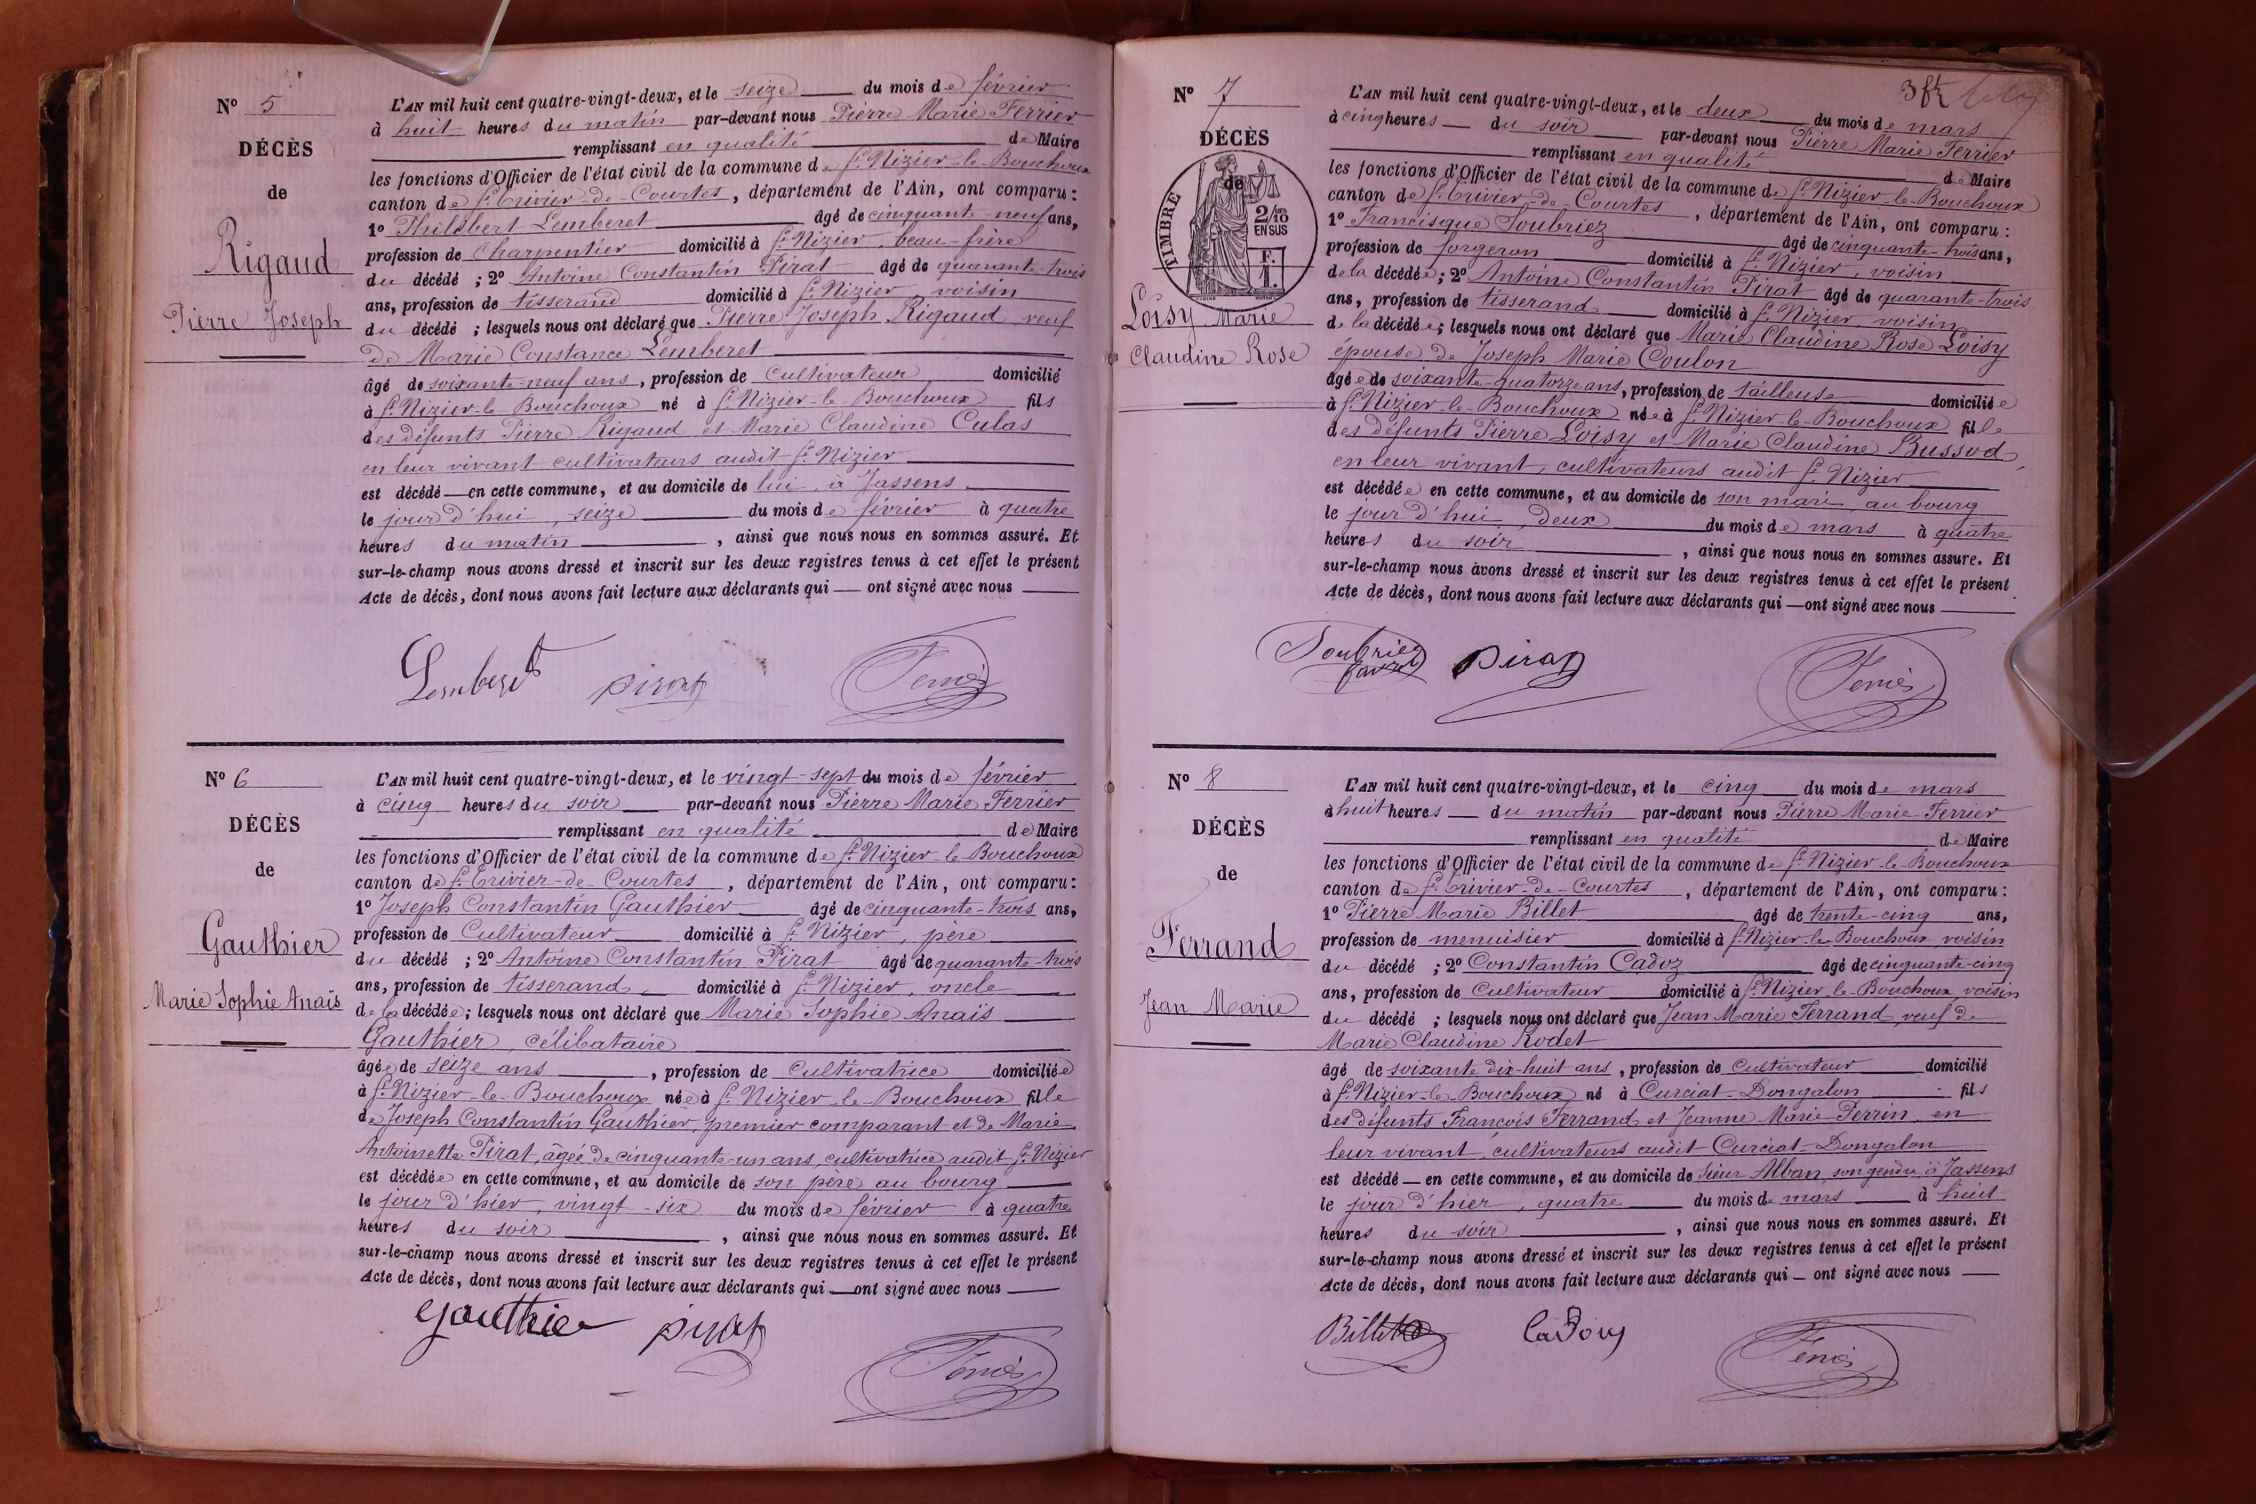 N° 5
DÉCÈS
de
Rigaud
Pierre Joseph
L'AN mil huit cent quatre-vingt-deux, et le seize du mois de février
à huit heures du matin par-devant nous Pierre Marie Ferrier
remplissant en qualité de Maire
les fonctions d'Officier de l'état civil de la commune de St Nizier-le-Bouchoux
canton de St Trivier-de-Courtes, département de l'Ain, ont comparu :
1° Philibert Lemberet âgé de cinquante-neuf ans,
profession de Charpentier domicilié à St Nizier, beau-frère
du décédé ; 2° Antoine Constantin Pirat âgé de quarante-trois
ans, profession de tisserand domicilié à St Nizier, voisin
du décédé ; lesquels nous ont déclaré que Pierre Joseph Rigaud, veuf
de Marie Constance Lemberet
âgé de soixante-neuf ans, profession de Cultivateur domicilié
à St Nizier-le-Bouchoux né à St Nizier-le-Bouchoux fils
des défunts Pierre Rigaud et Marie Claudine Culas
en leur vivant cultivateurs audit St Nizier
est décédé en cette commune, et au domicile de lui, à Jassens
le jour d'hui, seize du mois de février à quatre
heures du matin, ainsi que nous nous en sommes assuré. Et
sur-le-champ nous avons dressé et inscrit sur les deux registres tenus à cet effet le présent
Acte de décès, dont nous avons fait lecture aux déclarants qui ont signé avec nous
Lemberet Pirat Ferrier
N° 6
DÉCÈS
de
Gauthier
Marie Sophie Anaïs
L'AN mil huit cent quatre-vingt-deux, et le vingt-sept du mois de février
à cinq heures du soir par-devant nous Pierre Marie Ferrier
remplissant en qualité de Maire
les fonctions d'Officier de l'état civil de la commune de St Nizier-le-Bouchoux
canton de St Trivier-de-Courtes, département de l'Ain, ont comparu :
1° Joseph Constantin Gauthier âgé de cinquante-trois ans,
profession de Cultivateur domicilié à St Nizier, père
du décédé ; 2° Antoine Constantin Pirat âgé de quarante-trois
ans, profession de tisserand domicilié à St Nizier, oncle
de la décédée ; lesquels nous ont déclaré que Marie Sophie Anaïs
Gauthier, célibataire
âgée de seize ans, profession de Cultivatrice domiciliée
à St Nizier-le-Bouchoux née à St Nizier-le-Bouchoux fille
de Joseph Constantin Gauthier, premier comparant et de Marie
Antoinette Pirat, âgée de cinquante-un ans, cultivatrice audit St Nizier
est décédée en cette commune, et au domicile de son père au bourg
le jour d'hier, vingt-six du mois de février à quatre
heures du soir, ainsi que nous nous en sommes assuré. Et
sur-le-champ nous avons dressé et inscrit sur les deux registres tenus à cet effet le présent
Acte de décès, dont nous avons fait lecture aux déclarants qui ont signé avec nous
Gauthier Pirat Ferrier
3 fr
N° 7
DÉCÈS
de
TIMBRE
2/10
EN SUS
F.
1.
Loisy Marie
Claudine Rose
L'AN mil huit cent quatre-vingt-deux, et le deux du mois de mars
à cinq heures du soir par-devant nous Pierre Marie Ferrier
remplissant en qualité de Maire
les fonctions d'Officier de l'état civil de la commune de St Nizier-le-Bouchoux
canton de St Trivier-de-Courtes, département de l'Ain, ont comparu :
1° Francisque Soubriez âgé de cinquante-trois ans,
profession de forgeron domicilié à St Nizier, voisin
de la décédée ; 2° Antoine Constantin Pirat âgé de quarante-trois
ans, profession de tisserand domicilié à St Nizier, voisin
de la décédée ; lesquels nous ont déclaré que Marie Claudine Rose Loisy
épouse de Joseph Marie Coulon
âgée de soixante-quatorze ans, profession de tailleuse domiciliée
à St Nizier-le-Bouchoux née à St Nizier-le-Bouchoux fille
des défunts Pierre Loisy et Marie Claudine Bussod,
en leur vivant, cultivateurs audit St Nizier
est décédée en cette commune, et au domicile de son mari, au bourg
le jour d'hui, deux du mois de mars à quatre
heures du soir, ainsi que nous nous en sommes assuré. Et
sur-le-champ nous avons dressé et inscrit sur les deux registres tenus à cet effet le présent
Acte de décès, dont nous avons fait lecture aux déclarants qui ont signé avec nous
Soubriez Pirat Ferrier
N° 8
DÉCÈS
de
Ferrand
Jean Marie
L'AN mil huit cent quatre-vingt-deux, et le cinq du mois de mars
à huit heures du matin par-devant nous Pierre Marie Ferrier
remplissant en qualité de Maire
les fonctions d'Officier de l'état civil de la commune de St Nizier-le-Bouchoux
canton de St Trivier-de-Courtes, département de l'Ain, ont comparu :
1° Pierre Marie Billet âgé de trente-cinq ans,
profession de menuisier domicilié à St Nizier-le-Bouchoux voisin
du décédé ; 2° Constantin Cadoz âgé de cinquante-cinq
ans, profession de Cultivateur domicilié à St Nizier-le-Bouchoux voisin
du décédé ; lesquels nous ont déclaré que Jean Marie Ferrand, veuf de
Marie Claudine Rodet
âgé de soixante dix-huit ans, profession de Cultivateur domicilié
à St Nizier-le-Bouchoux né à Curciat-Dongalon fils
des défunts François Ferrand et Jeanne Marie Perrin, en
leur vivant, cultivateurs audit Curciat-Dongalon
est décédé en cette commune, et au domicile de Sieur Alban, son gendre, à Jassens
le jour d'hier, quatre du mois de mars à huit
heures du soir, ainsi que nous nous en sommes assuré. Et
sur-le-champ nous avons dressé et inscrit sur les deux registres tenus à cet effet le présent
Acte de décès, dont nous avons fait lecture aux déclarants qui ont signé avec nous
Billet Cadoz Ferrier